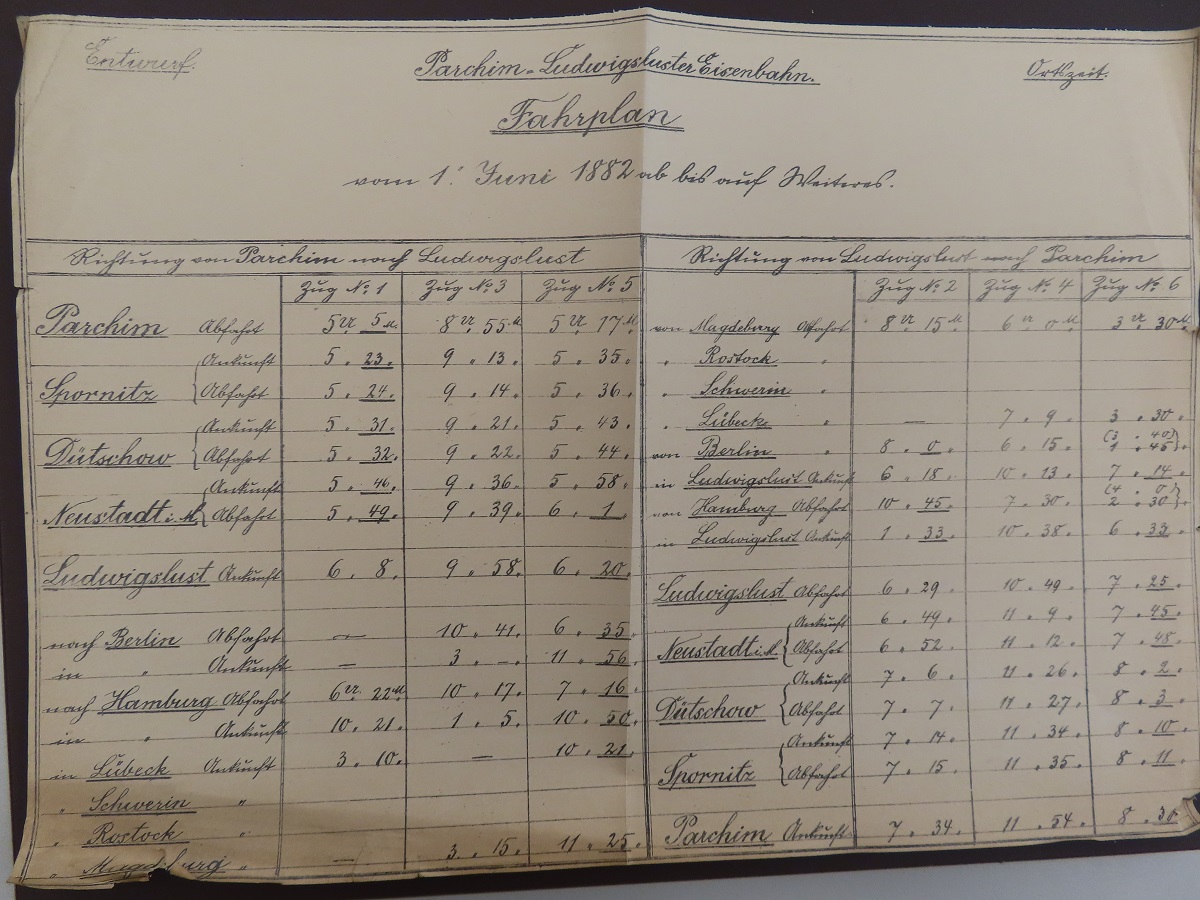 Entwurf.
Parchim-Ludwigsluster Eisenbahn.
Ortszeit.
Fahrplan
vom 1. Juni 1882 ab bis auf Weiteres.
Richtung von Parchim nach Ludwigslust
Zug No. 1 Zug No. 3 Zug No. 5
Parchim Abfahrt 5 U. 5 M. 8 U. 55 M. 5 U. 17 M.
Ankunft 5 . 23 . 9 . 13 . 5 . 35 .
Spornitz Abfahrt 5 . 24 . 9 . 14 . 5 . 36 .
Ankunft 5 . 31 . 9 . 21 . 5 . 43 .
Dütschow Abfahrt 5 . 32 . 9 . 22 . 5 . 44 .
Ankunft 5 . 46 . 9 . 36 . 5 . 58 .
Neustadt i. M. Abfahrt 5 . 49 . 9 . 39 . 6 . 1 .
Ludwigslust Ankunft 6 . 8 . 9 . 58 . 6 . 20 .
nach Berlin Abfahrt — 10 . 41 . 6 . 35 .
in " Ankunft — 3 . — . 11 . 56 .
nach Hamburg Abfahrt 6 U. 22 M. 10 . 17 . 7 . 16 .
in " Ankunft 10 . 21 . 1 . 5 . 10 . 50 .
in Lübeck Ankunft 3 . 10 . — 10 . 21 .
" Schwerin "
" Rostock "
" Magdeburg " — 3 . 15 . 11 . 25 .
Richtung von Ludwigslust nach Parchim
Zug No. 2 Zug No. 4 Zug No. 6
von Magdeburg Abfahrt 8 U. 15 M. 6 U. 0 M. 3 U. 30 M.
" Rostock "
" Schwerin "
" Lübeck " — 7 . 9 . 3 . 30 .
(3 . 40)
von Berlin " 8 . 0 . 6 . 15 . 1 . 45 .
in Ludwigslust Ankunft 6 . 18 . 10 . 13 . 7 . 14 .
(4 . 0)
von Hamburg Abfahrt 10 . 45 . 7 . 30 . 2 . 30 .
in Ludwigslust Ankunft 1 . 33 . 10 . 38 . 6 . 33 .
Ludwigslust Abfahrt 6 . 29 . 10 . 49 . 7 . 25 .
Ankunft 6 . 49 . 11 . 9 . 7 . 45 .
Neustadt i. M. Abfahrt 6 . 52 . 11 . 12 . 7 . 48 .
Ankunft 7 . 6 . 11 . 26 . 8 . 2 .
Dütschow Abfahrt 7 . 7 . 11 . 27 . 8 . 3 .
Ankunft 7 . 14 . 11 . 34 . 8 . 10 .
Spornitz Abfahrt 7 . 15 . 11 . 35 . 8 . 11 .
Parchim Ankunft 7 . 34 . 11 . 54 . 8 . 30